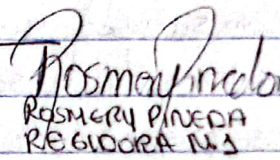 Rosmery Pineda
ROSMERY PINEDA
REGIDORA N.1